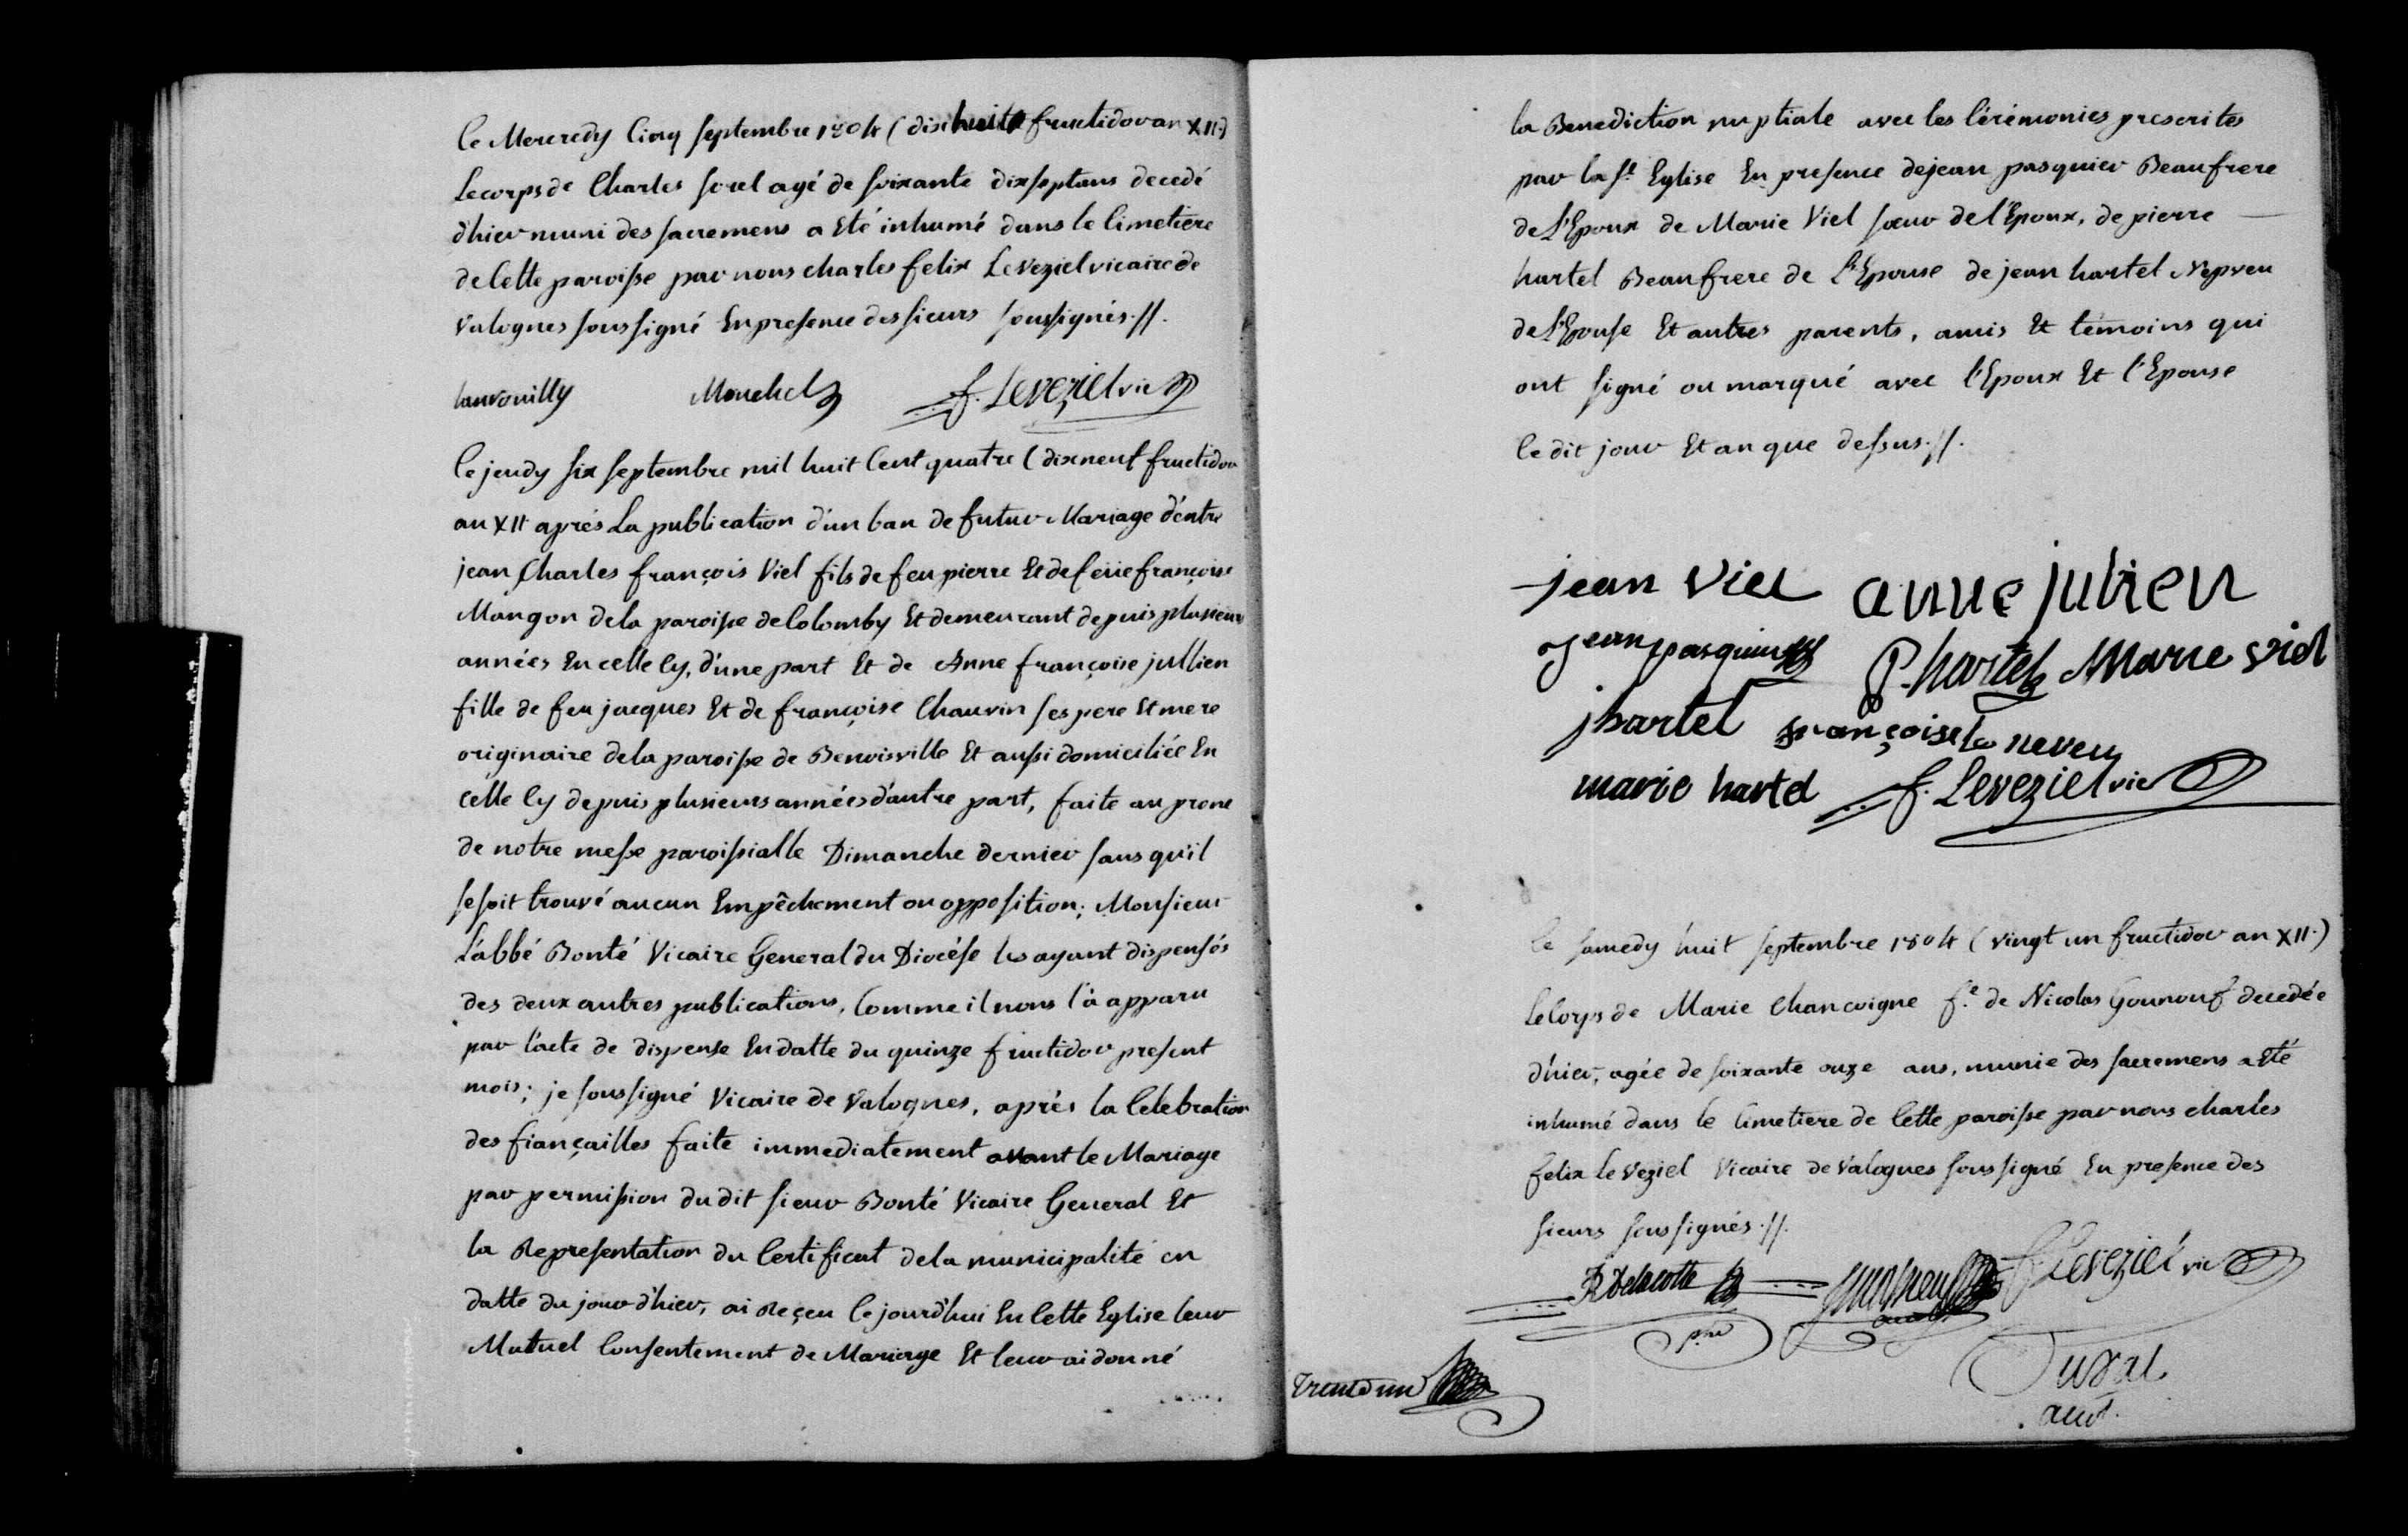 Ce Mercredy Cinq Septembre 1804 (dix huit fructidor an XII.)
Le corps de Charles Sorel agé de soixante dix sept ans decedé
d'hier muni des sacremens a Eté inhumé dans le Cimetiere
de Cette paroisse par nous charles felix Leveziel vicaire de
Valognes soussigné En presence des sieurs soussignés.//.
Mouchel f. Leveziel vic
Ce jeudy six septembre mil huit Cent quatre (dix neuf fructidor
an XII après La publication d'un ban de futur Mariage d'entre
jean Charles françois Viel fils de feu pierre Et de feüe françoise
Mangon de la paroisse de Colomby Et demeurant depuis plusieurs
années En celle Cy, d'une part Et de Anne françoise jullien
fille de feu jacques Et de françoise Chauvin ses pere Et mere
originaire de la paroisse de Benoisville Et aussi domiciliée En
Celle Cy depuis plusieurs années d'autre part, faite au prone
de notre messe paroissialle Dimanche dernier sans qu'il
se soit trouvé aucun Empêchement ou opposition; Monsieur
L'abbé Bonté Vicaire General du Diocése les ayant dispensés
des deux autres publications, Comme il nous l'a apparu
par l'acte de dispense En datte du quinze fructidor present
mois; je soussigné Vicaire de Valognes, après la Celebration
des fiançailles faite immediatement avant le Mariage
par permission du dit sieur Bonté Vicaire General Et
la Representation du Certificat de la municipalité en
datte du jour d'hier, ai Reçeu Ce jourd'hui En Cette Eglise leur
Mutuel Consentement de Mariage Et leur ai donné
la Benediction nuptiale avec les Cérémonies prescrites
par la Ste Eglise En presence de jean pasquier Beaufrere
de L'Epoux de Marie Viel sœur de l'Epoux, de pierre
hartel Beaufrere de L'Epouse de jean hartel Nepveu
de L'Epouse Et autres parents, amis Et témoins qui
ont signé ou marqué avec l'Epoux Et l'Epouse
le dit jour Et an que dessus.//.
jean viel anne julien
jean pasquier P. hartel Marie viel
j hartel françoise le neveu
marie hartel f. Leveziel vic
Ce samedy huit septembre 1804 (vingt un fructidor an XII.)
Le Corps de Marie Chancoigne fe de Nicolas Gounouf decedée
d'hier, agée de soixante onze ans, munie des sacremens a Eté
inhumé dans le Cimetiere de Cette paroisse par nous charles
felix Le Veziel Vicaire de Valognes soussigné En presence des
sieurs soussignés.//.
Delacotte f. Leveziel vic
ptre
Duval